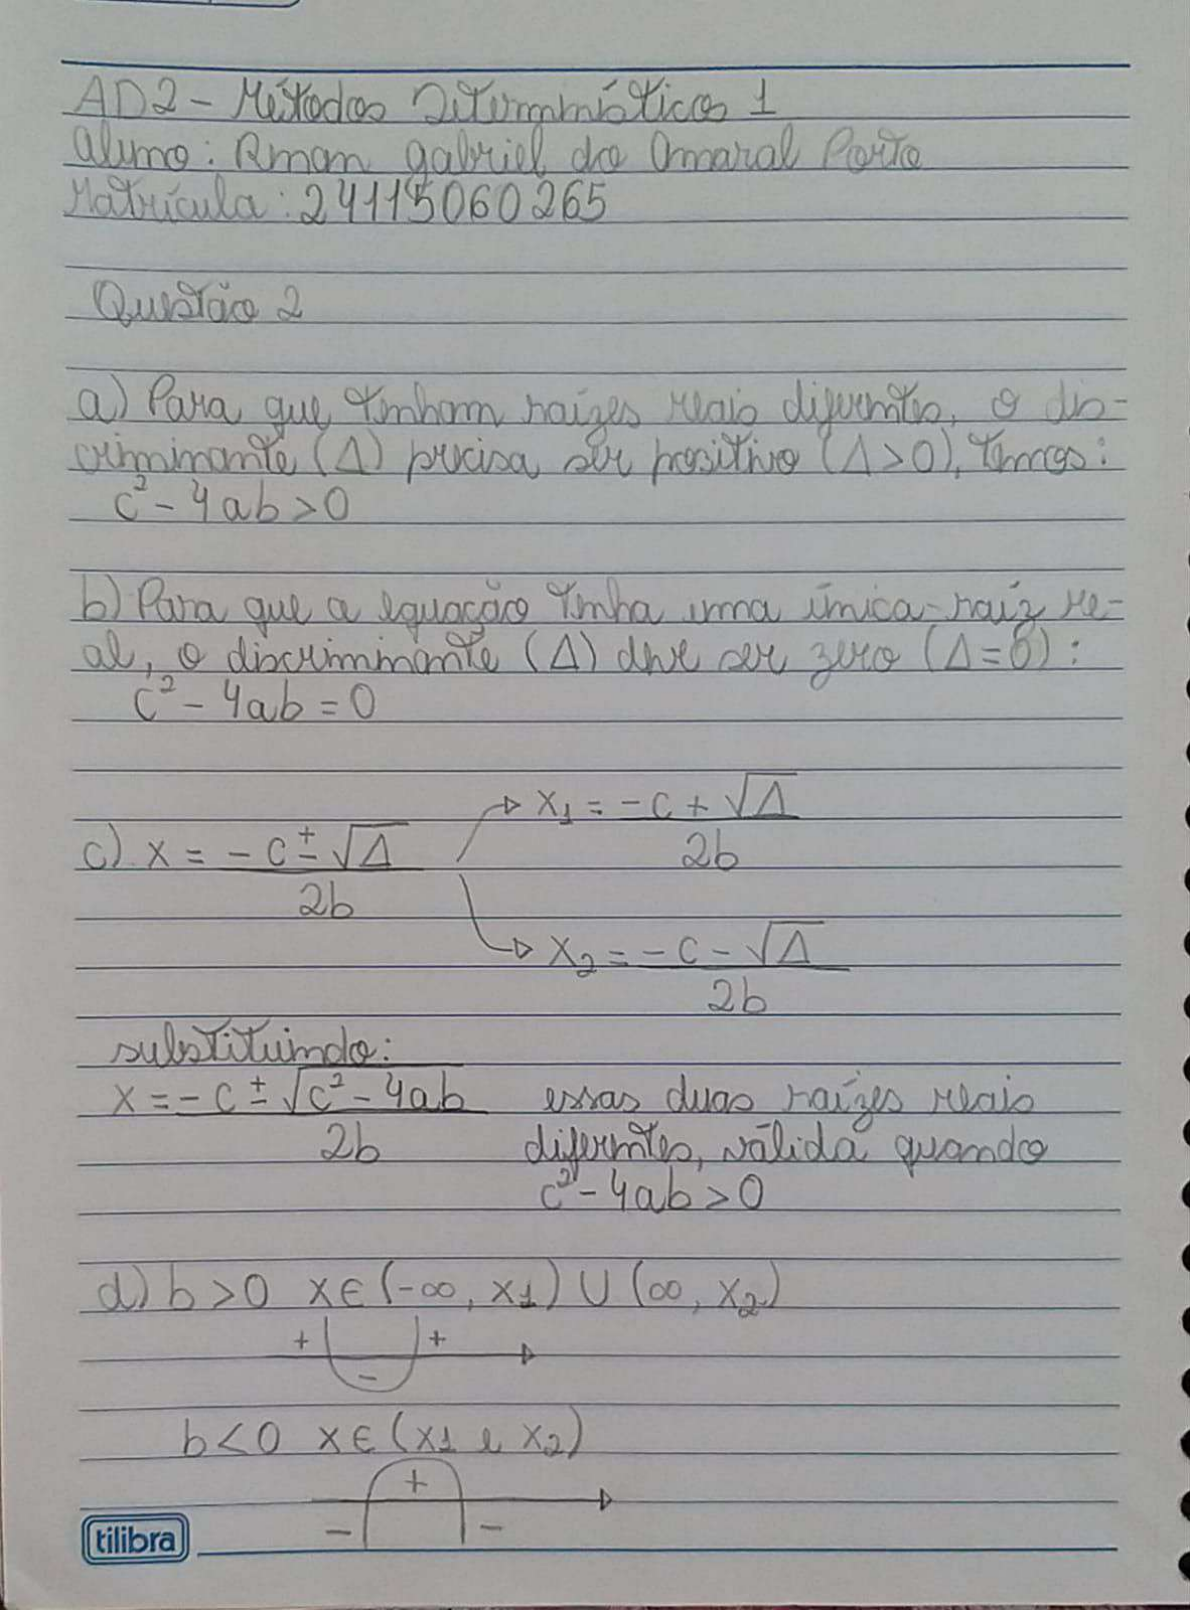 AD2 - Métodos Determinísticos 1
Aluno: Rman gabriel do Amaral Porto
Matrícula: 24115060265
Questão 2
a) Para que tenham raízes reais diferentes, o dis-
criminante (Δ) precisa ser positivo (Δ>0), temos:
c² - 4ab > 0
b) Para que a equação tenha uma única raiz re-
al, o discriminante (Δ) deve ser zero (Δ=0):
c² - 4ab = 0
c) x = (-c ± √Δ) / 2b
x1 = (-c + √Δ) / 2b
x2 = (-c - √Δ) / 2b
substituindo:
x = (-c ± √(c² - 4ab)) / 2b
essas duas raízes reais
diferentes, válida quando
c² - 4ab > 0
d) b > 0 x∈(-∞, x1) ∪ (∞, x2)
+ - +
b < 0 x∈(x1 e x2)
- + -
tilibra